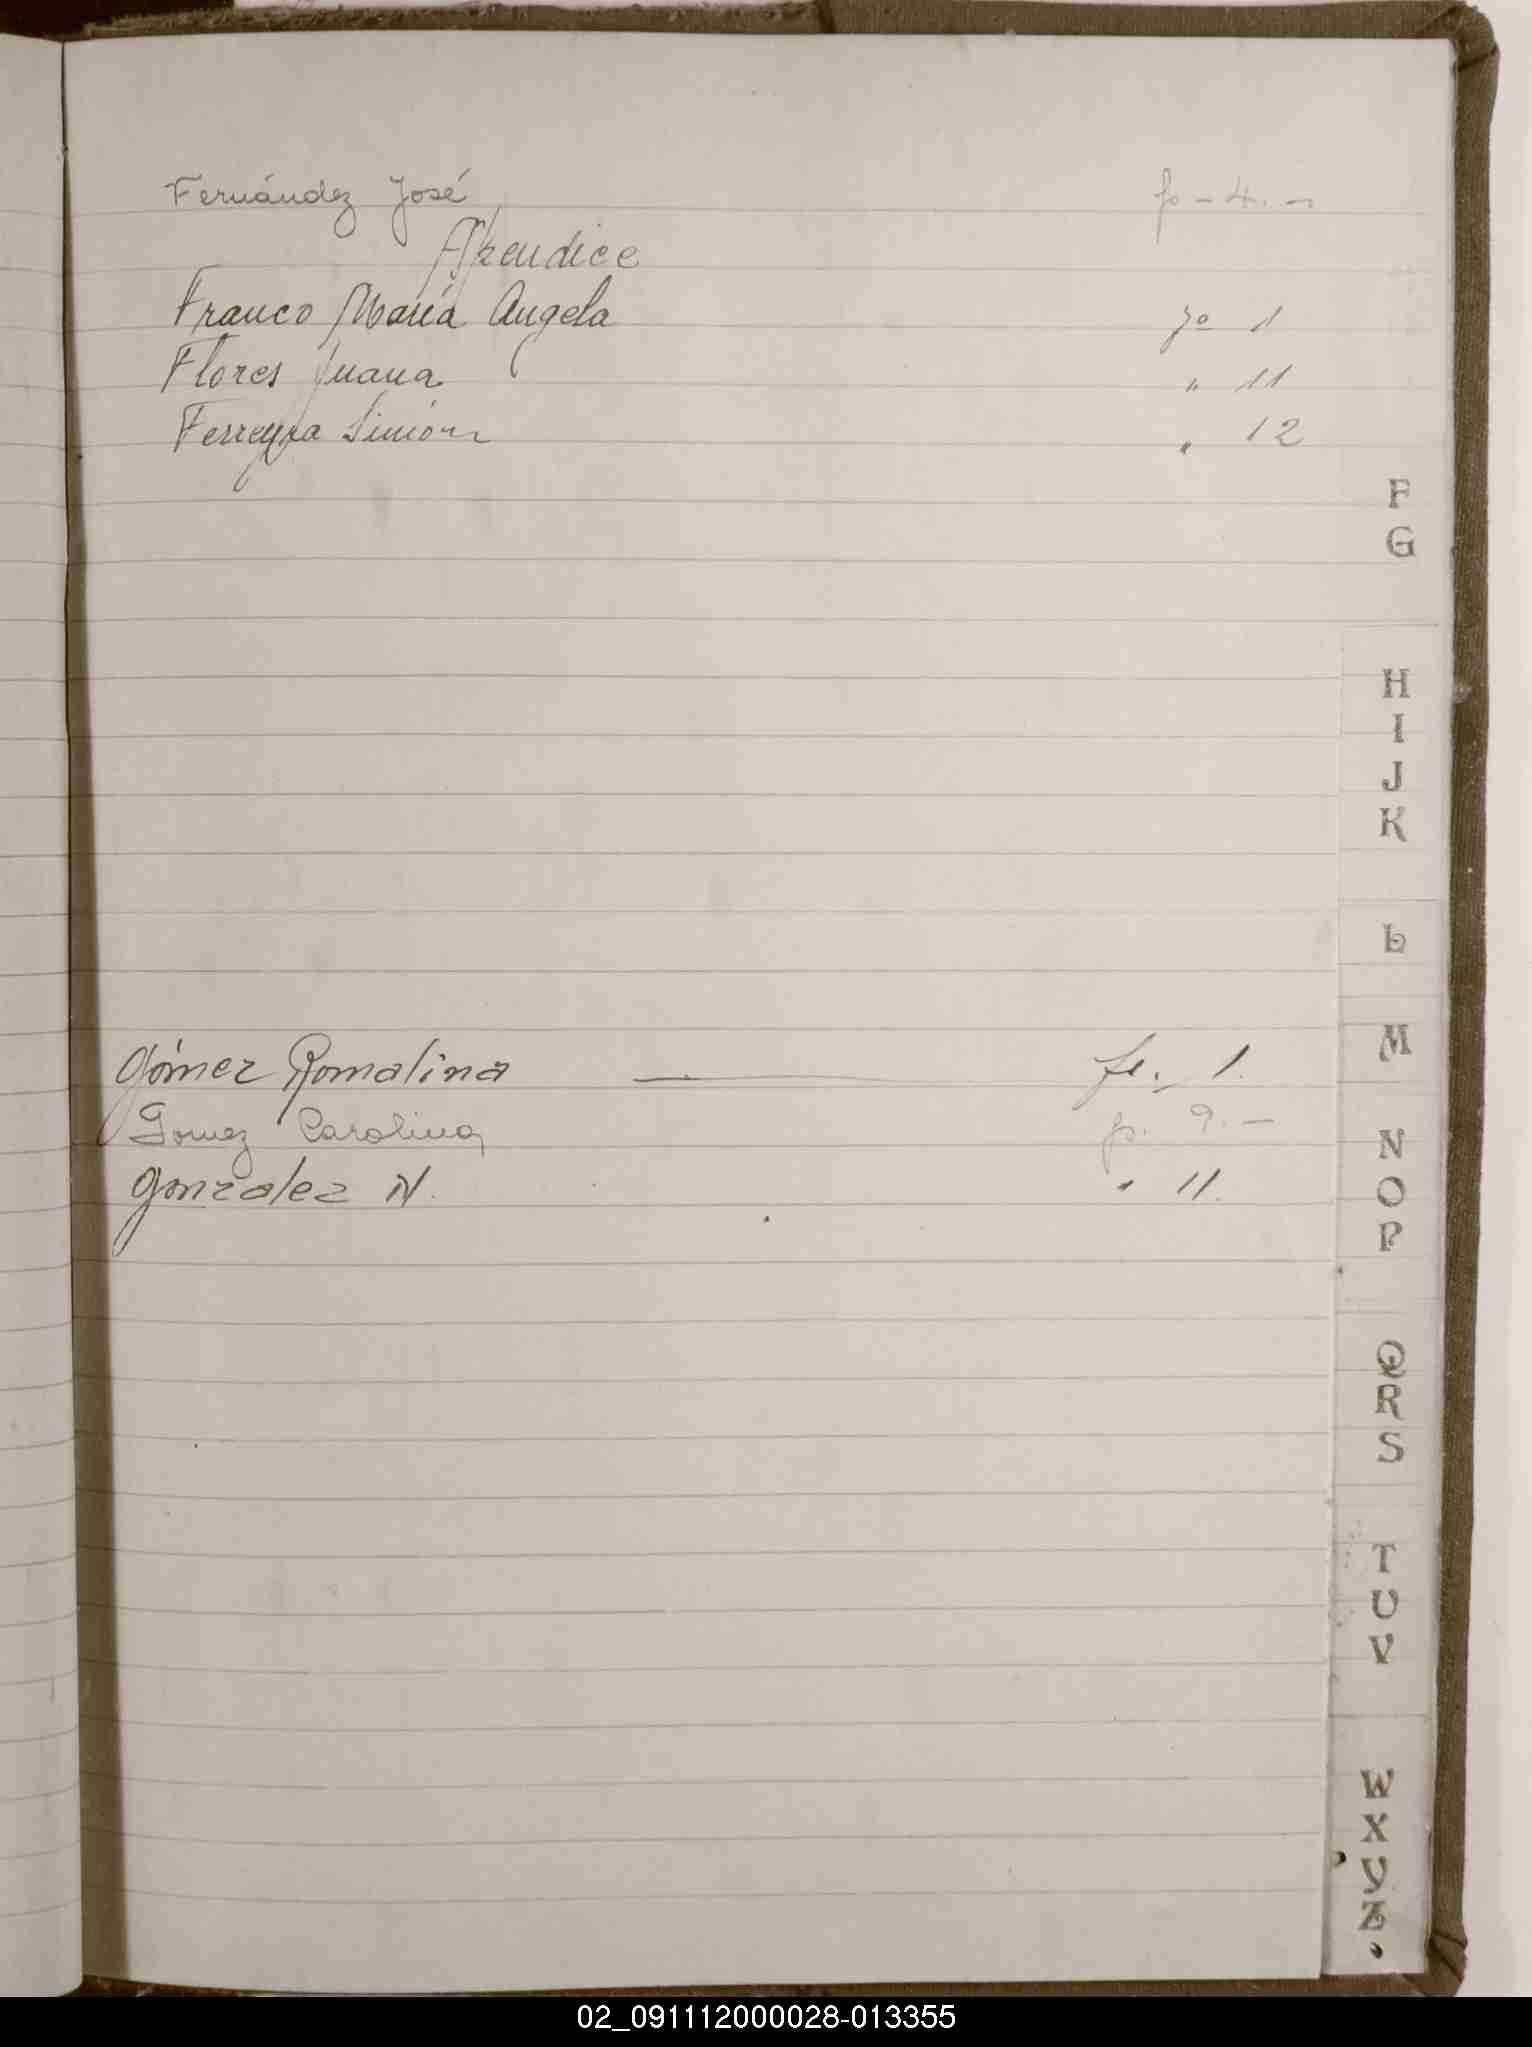 Fernández José fo - 4. -
Apendice
Franco María Angela fo 1
Flores Juana " 11
Ferreyra Simón " 12
F
G
H
I
J
K
L
M
Gómez Romalina — fo. 1.
Gomez Carolina fo. 9. —
Gonzalez N. " 11.
N
O
P
Q
R
S
T
U
V
W
X
Y
Z
02_091112000028-013355